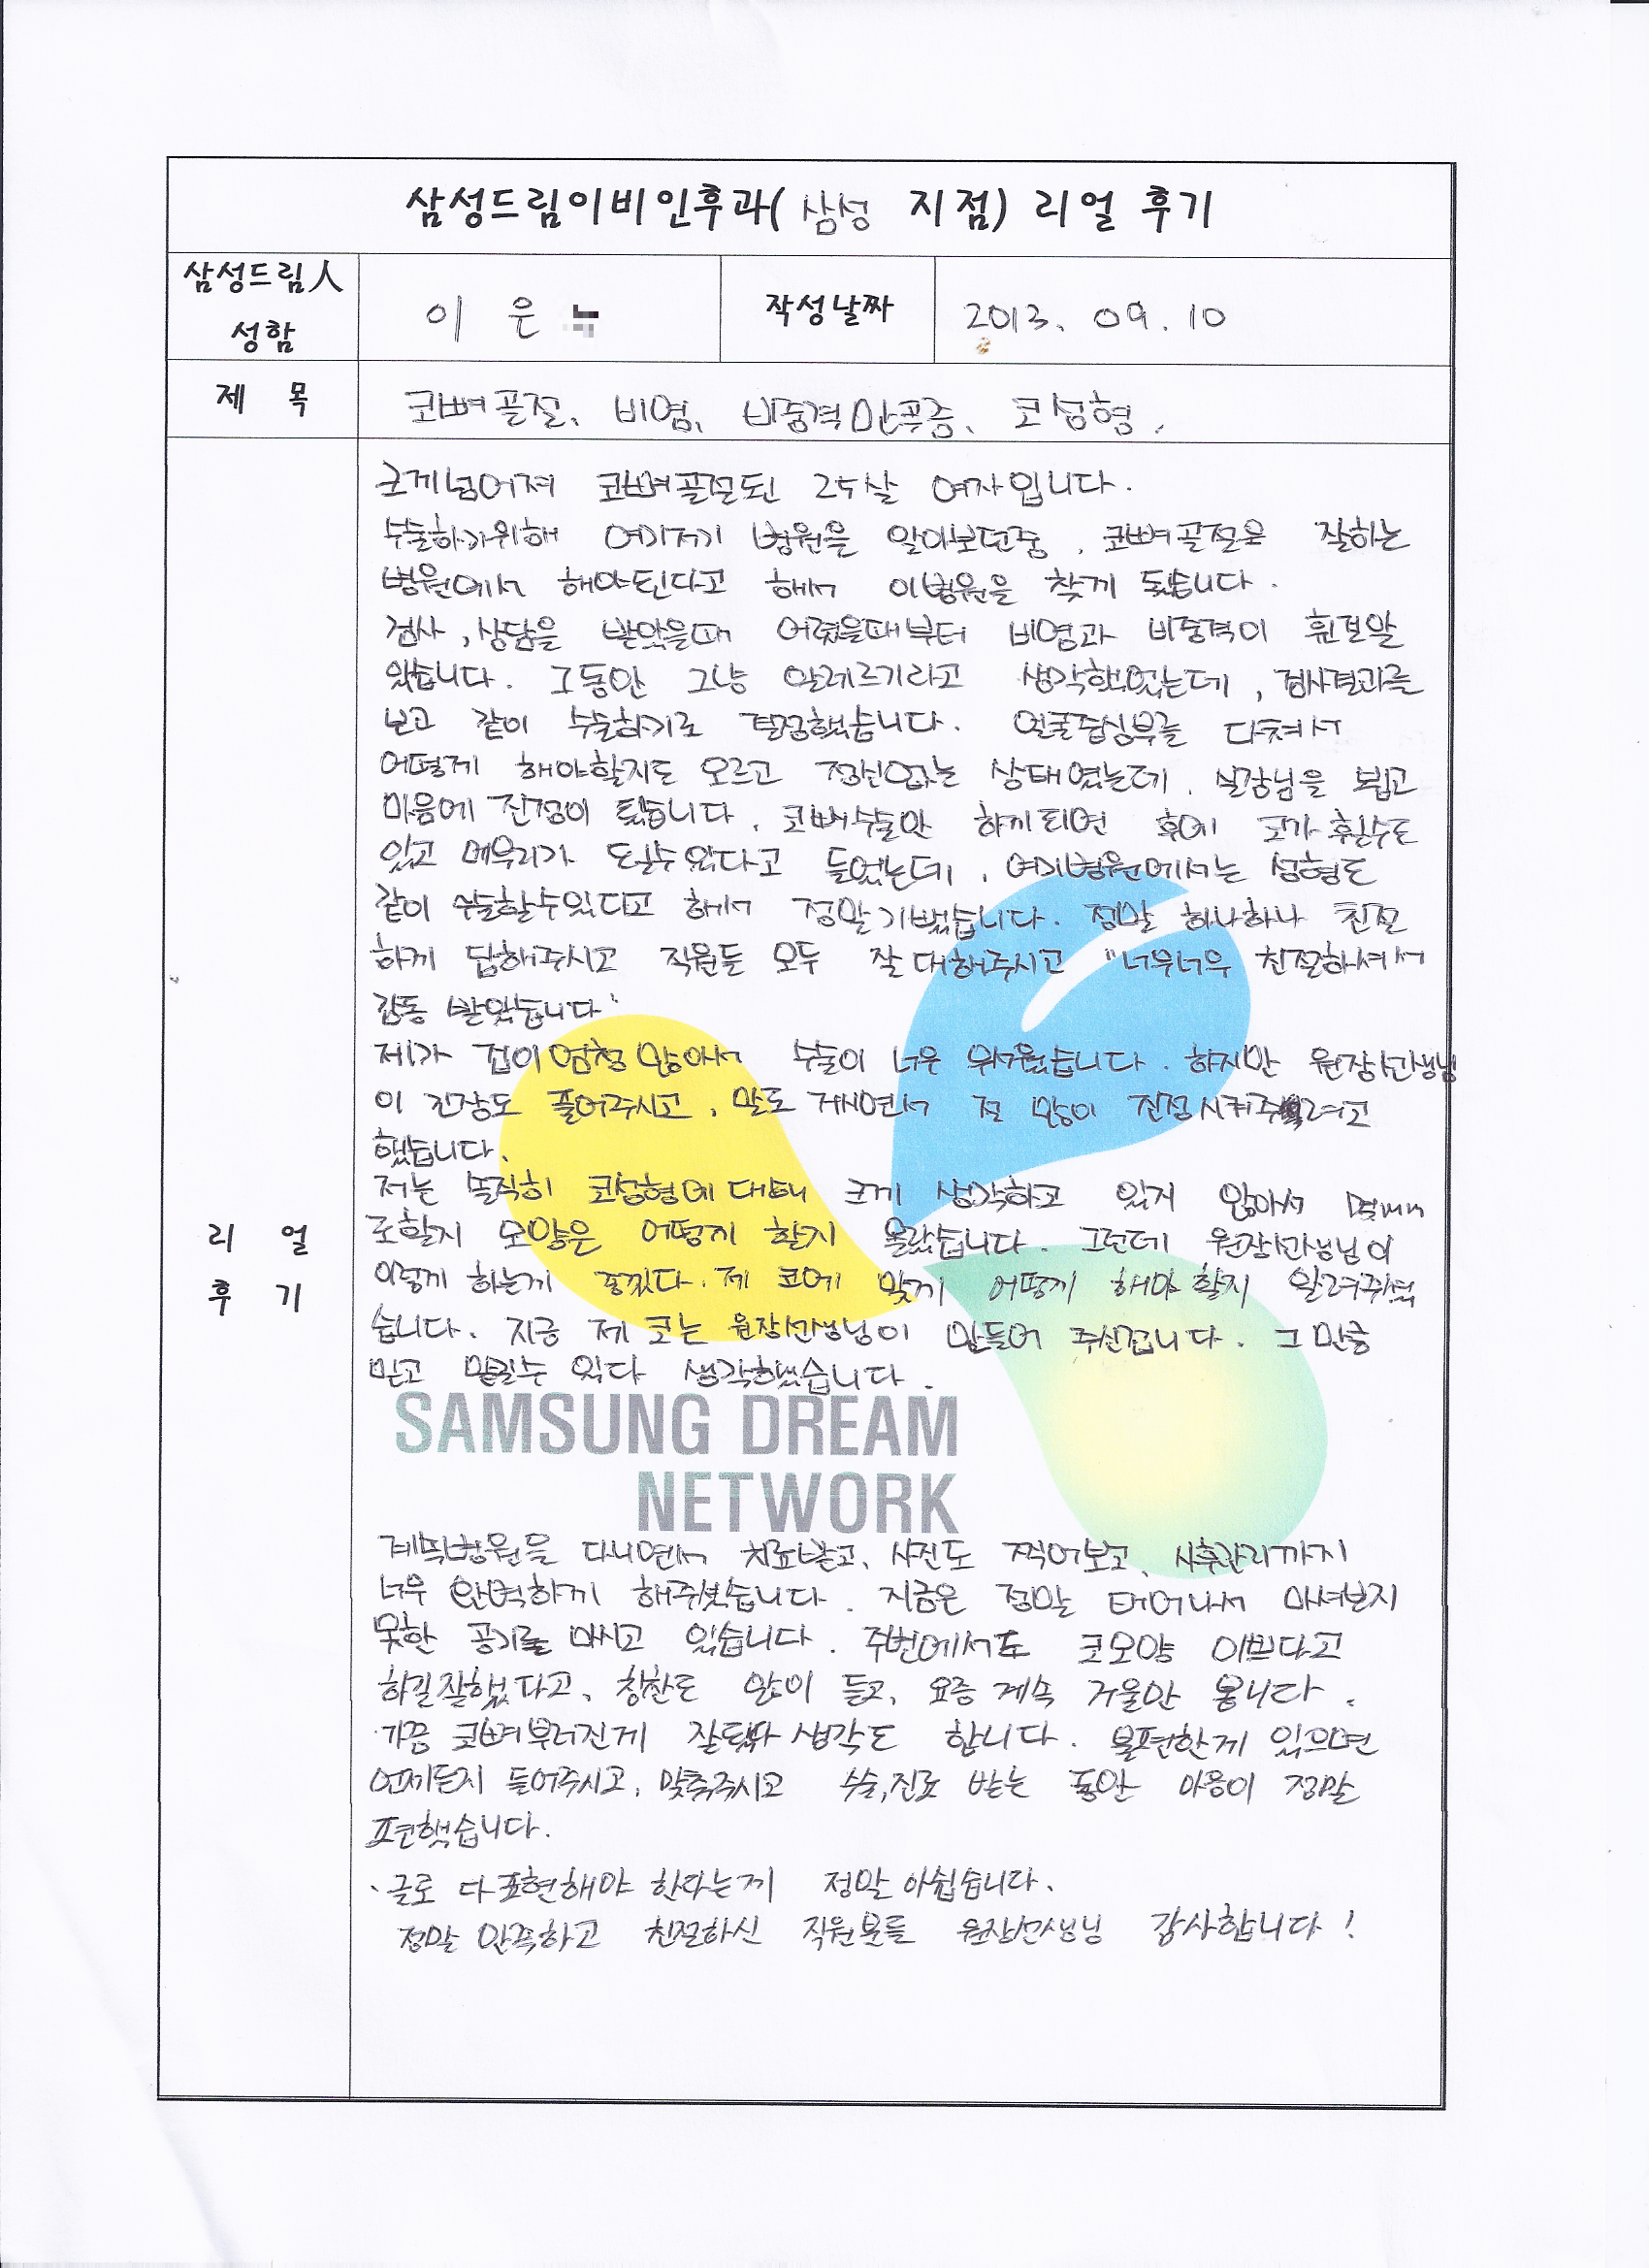 삼성드림이비인후과( 삼성 지점) 리얼 후기
삼성드림人
성함
이 은
작성날짜
2013. 09. 10
제 목
코뼈골절, 비염, 비중격만곡증, 코성형.
크게넘어져 코뼈골절된 25살 여자입니다.
수술하기위해 여기저기 병원을 알아보던중, 코뼈골절을 잘하는
병원에서 해야된다고 해서 이병원을 찾게 됬습니다.
검사, 상담을 받았을때 어렸을때부터 비염과 비중격이 휜걸알
았습니다. 그동안 그냥 알레르기라고 생각했었는데, 검사결과를
보고 같이 수술하기로 결정했습니다. 얼굴중심부를 다쳐서
어떻게 해야할지도 모르고 정신없는 상태였는데, 실장님을 뵙고
마음에 진정이 됬습니다. 코뼈수술만 하게되면 후에 코가 휠수도
있고 메부리가 될수있다고 들었는데, 여기병원에서는 성형도
같이 수술할수있다고 해서 정말기뻤습니다. 정말 하나하나 친절
하게 답해주시고 직원들 모두 잘대해주시고 "너무너무 친절하셔서
감동 받았습니다"
제가 겁이엄청많아서 수술이 너무 무서웠습니다. 하지만 원장선생님
이 긴장도 풀어주시고, 말도 거시면서 절 많이 진정시켜주려고
했습니다.
저는 솔직히 코성형에대해 크게 생각하고 있지 않아서 몇mm
로할지 모양은 어떻게 할지 몰랐습니다. 그런데 원장선생님이
이렇게 하는게 좋겠다. 제 코에 맞게 어떻게 해야 할지 알려주셨
습니다. 지금 제 코는 원장선생님이 만들어 주신겁니다. 그만큼
믿고 맡길수 있다 생각했습니다.
SAMSUNG DREAM
NETWORK
리 얼
후 기
계속병원을 다니면서 치료받고, 사진도 찍어보고, 사후관리까지
너무 완벽하게 해주셨습니다. 지금은 정말 태어나서 마셔보지
못한 공기를 마시고 있습니다. 주변에서도 코모양 이쁘다고
하길잘했다고, 칭찬도 많이 듣고, 요즘 계속 거울만 봅니다.
가끔 코뼈부러진게 잘됬다 생각도 합니다. 불편한게 있으면
언제든지 들어주시고, 맞춰주시고 수술,진료 받는 동안 마음이 정말
편했습니다.
글로 다표현해야 한다는게 정말아쉽습니다.
정말 만족하고 친절하신 직원분들 원장선생님 감사합니다!